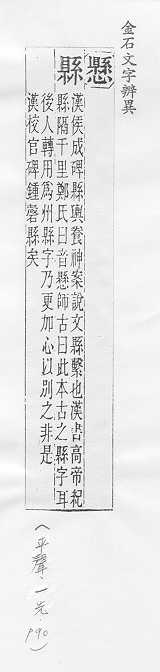 金石文字辨異
懸
縣
漢侯成碑縣輿養神案說文縣繫也漢書高帝紀
縣隔千里鄭氏曰音懸師古曰此本古之縣字耳
後人轉用爲州縣字乃更加心以別之非是
漢校官碑鍾磬縣矣
(平聲.一先.P90)